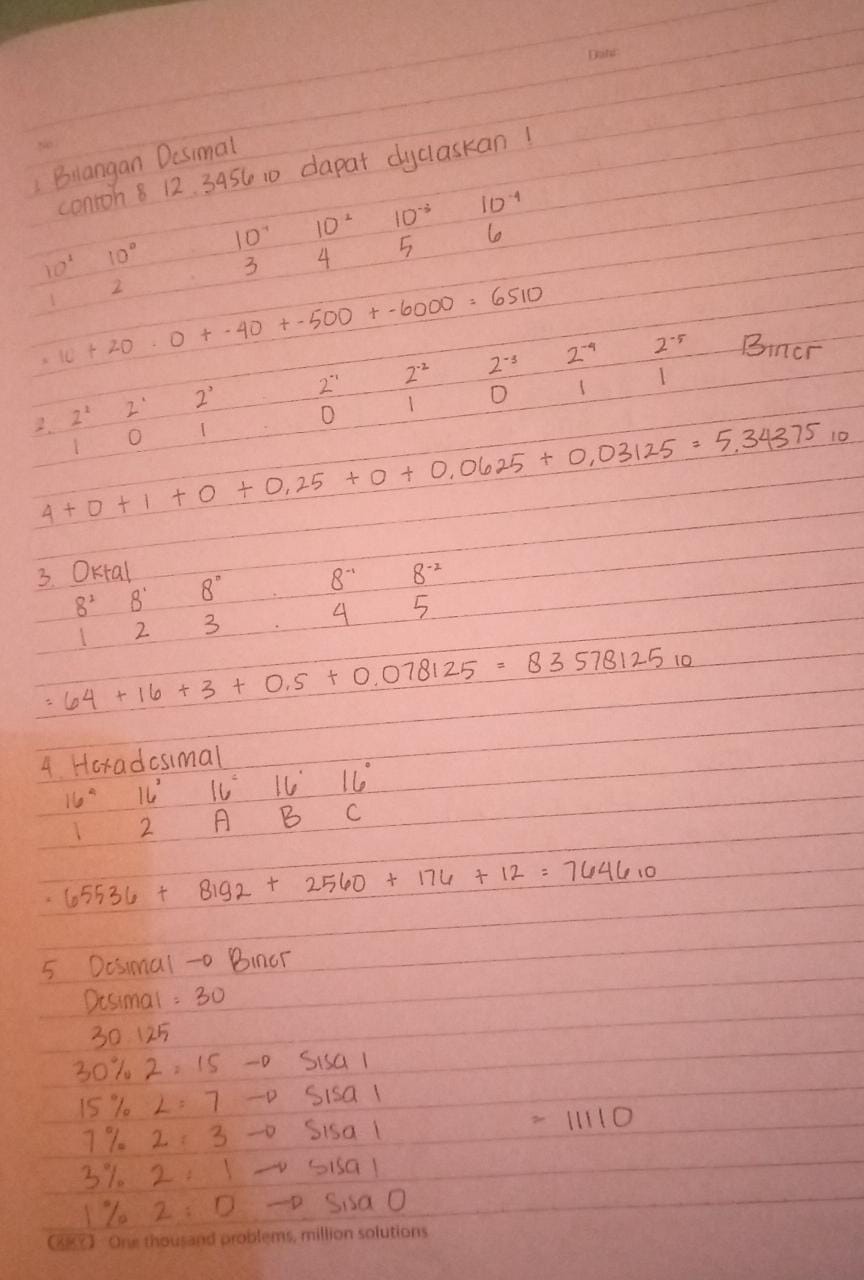 Date:
No.
1. Bilangan Desimal
contoh 8 12.3456 10 dapat dijelaskan !
10¹ 10⁰ 10⁻¹ 10⁻² 10⁻³ 10⁻⁴
1 2 . 3 4 5 6
= 10 + 20 . 0 + -40 + -500 + -6000 = 6510
2. 2² 2¹ 2⁰ 2⁻¹ 2⁻² 2⁻³ 2⁻⁴ 2⁻⁵ Biner
1 0 1 . 0 1 0 1 1
4 + 0 + 1 + 0 + 0,25 + 0 + 0,0625 + 0,03125 = 5,34375 10
3. Oktal
8² 8¹ 8⁰ . 8⁻¹ 8⁻²
1 2 3 . 4 5
= 64 + 16 + 3 + 0.5 + 0.078125 = 83 578125 10
4. Hexadesimal
16⁴ 16³ 16² 16¹ 16⁰
1 2 A B C
= 65536 + 8192 + 2560 + 176 + 12 = 7646 10
5. Desimal → Biner
Desimal = 30
30 125
30 % 2 = 15 → Sisa 1
15 % 2 = 7 → Sisa 1
7 % 2 = 3 → Sisa 1 = 11110
3 % 2 = 1 → Sisa 1
1 % 2 = 0 → Sisa 0
KIKY One thousand problems, million solutions